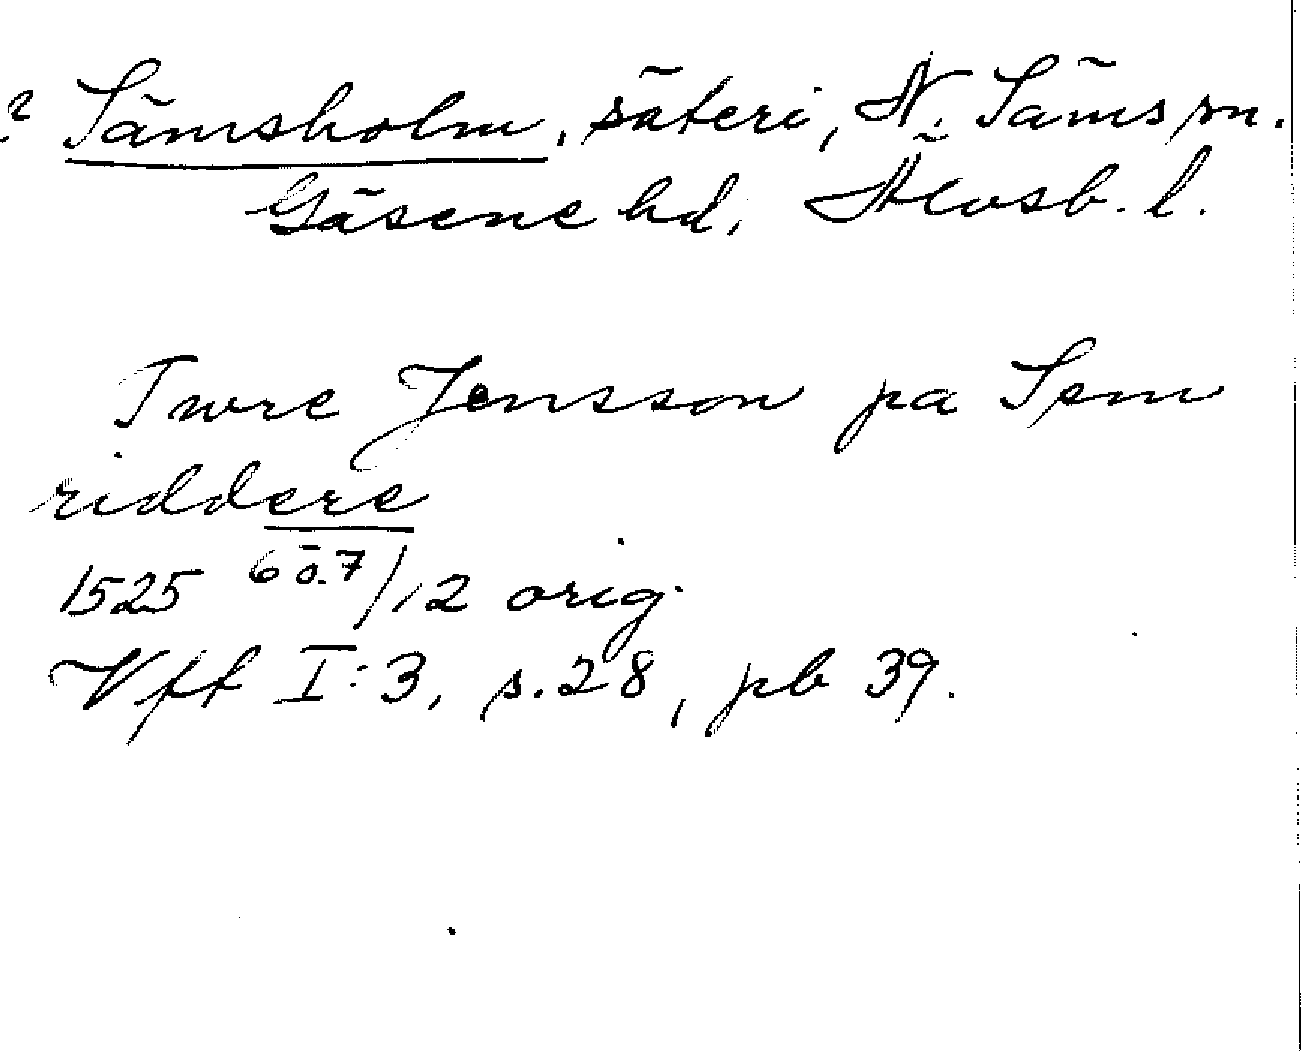 ? Sämsholm, säteri, N. Säms sn.
Gäsene hd, Älvsb. l.
Twre Jensson pa Sem
riddere
1525 6 o. 7/12 orig.
Vff I:3, s. 28, pb 39.